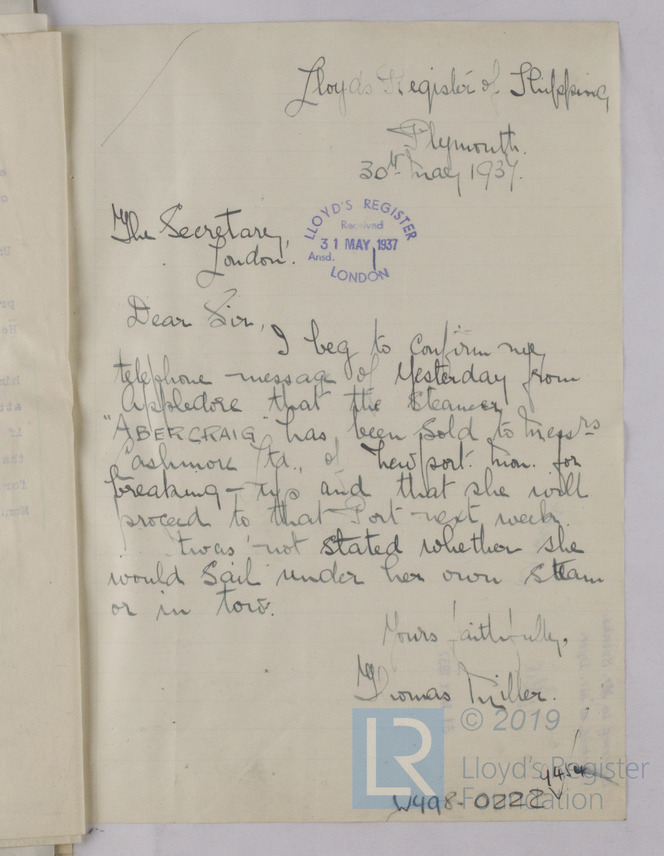 Lloyds Register of Shipping
Plymouth.
30th May 1937.
The Secretary,
London.
LLOYD'S REGISTER
Received
31 MAY 1937
Ansd.
LONDON
Dear Sir,
I beg to confirm my
telephone message of yesterday from
Appledore that the steamer
"ABERCRAIG" has been sold to Messrs
Cashmore Ltd., of Newport. Mon. for
breaking-up and that she will
proceed to that Port next week.
twas not stated whether she
would sail under her own steam
or in tow.
Yours faithfully,
Thomas Miller.
LR © 2019
Lloyd's Register
Foundation
W498-0222